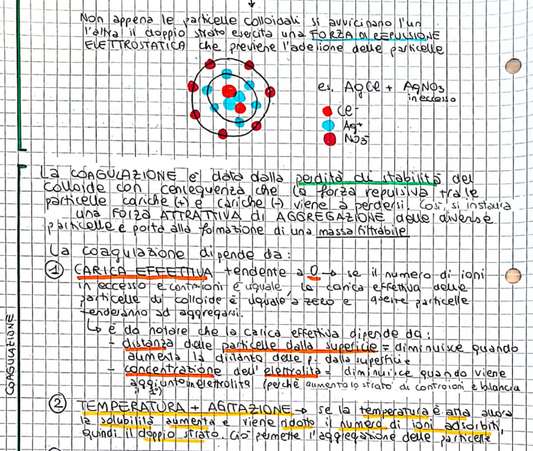 Non appena le particelle colloidali si avvicinano l'un
l'altra il doppio strato esercita una FORZA DI REPULSIONE
ELETTROSTATICA che previene l'adesione delle particelle
es. AgCl + AgNO3
in eccesso
Cl-
Ag+
NO3-
La COAGULAZIONE è data dalla perdita di stabilità del
colloide con conseguenza che la forza repulsiva tra le
particelle cariche (+) e cariche (-) viene a perdersi. Così, si instaura
una FORZA ATTRATTIVA di AGGREGAZIONE delle diverse
particelle e porta alla formazione di una massa filtrabile
La coagulazione dipende da:
① CARICA EFFETTIVA tendente a 0 → se il numero di ioni
in eccesso e controioni è uguale, la carica effettiva delle
particelle di colloide è uguale a zero e queste particelle
tenderanno ad aggregarsi.
↳ è da notare che la carica effettiva dipende da:
- distanza delle particelle dalla superficie = diminuisce quando
aumenta la distanza delle p. dalla superficie
- concentrazione dell'elettrolita = diminuisce quando viene
aggiunto elettrolita (perché aumenta lo strato di controioni e bilancia
② TEMPERATURA + AGITAZIONE → se la temperatura è alta allora
la solubilità aumenta e viene ridotto il numero di ioni adsorbiti,
quindi il doppio strato. Ciò permette l'aggregazione delle particelle.
COAGULAZIONE